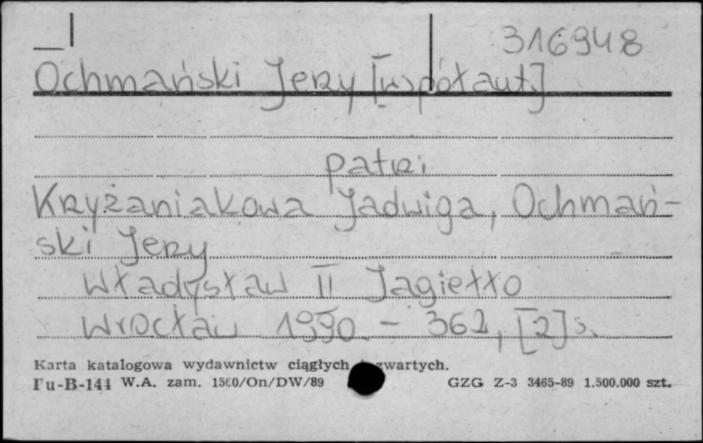 316948
Ochmański Jerzy [współaut.]
patrz:
Krzyżaniakowa Jadwiga, Ochmań-
ski Jerzy
Władysław II Jagiełło
Wrocław 1990. – 361, [2] s.
Karta katalogowa wydawnictw ciągłych zwartych.
Pu-B-144 W.A. zam. 1560/On/DW/89 GZG Z-3 3465-89 1.500.000 szt.